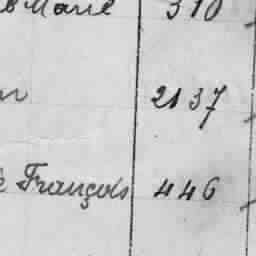 Marie 310
2137
François 446